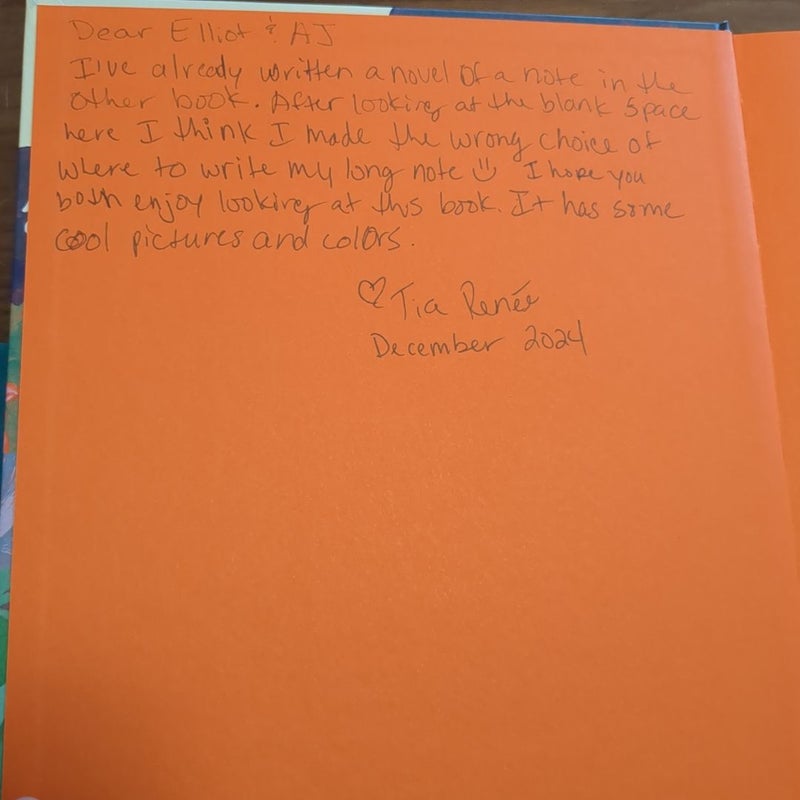 Dear Elliot & AJ
I've already written a novel of a note in the
other book. After looking at the blank space
here I think I made the wrong choice of
where to write my long note I hope you
both enjoy looking at this book. It has some
cool pictures and colors.
♡ Tia Renée
December 2024